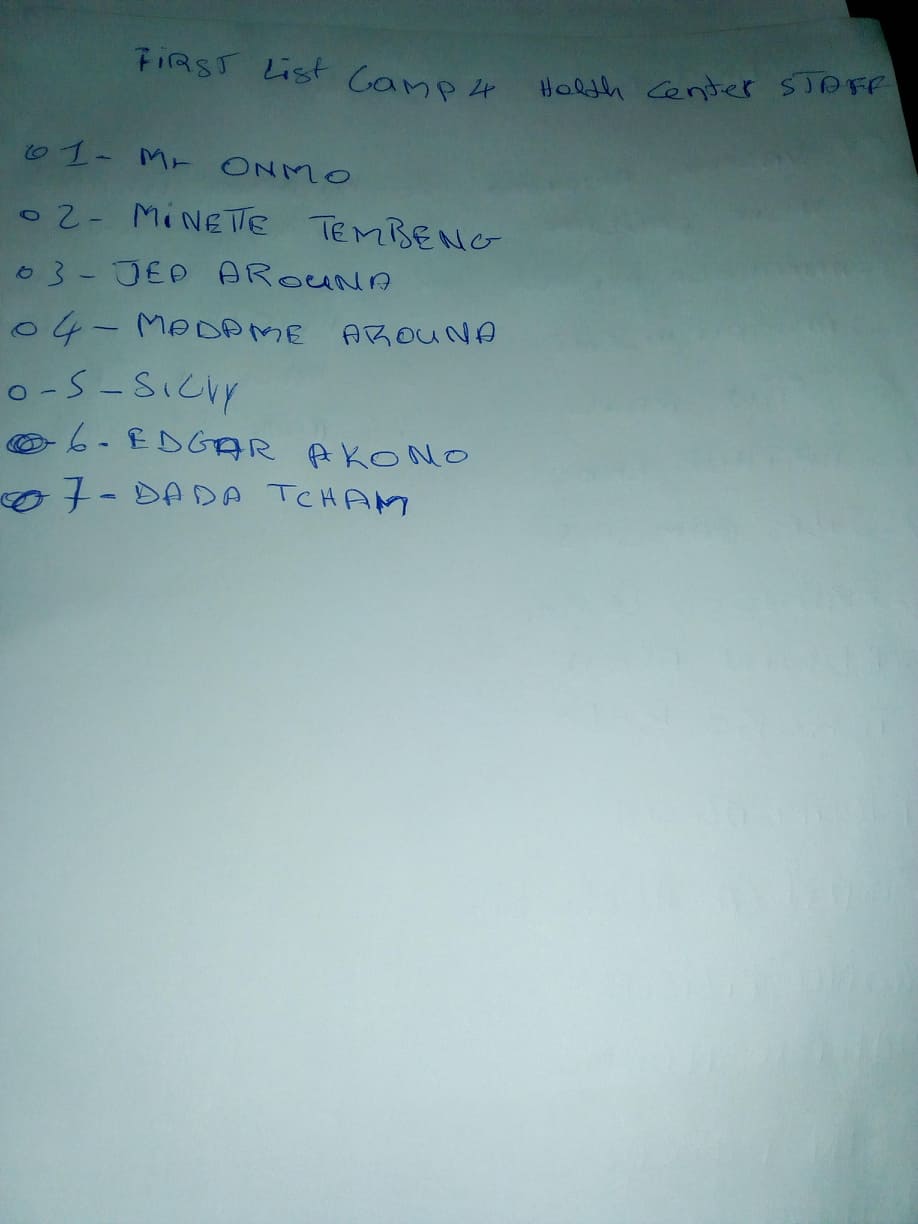 FIRST List Camp 4 Health Center STAFF
01- Mr ONMO
02- MINETTE TEMBENG
03- JED AROUNA
04- MADAME AROUNA
0-5- SILVY
6- EDGAR AKONO
7- DADA TCHAM